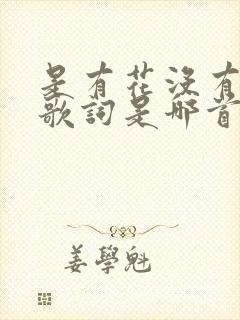 是有花沒有
歌詞是哪首
姜學魁